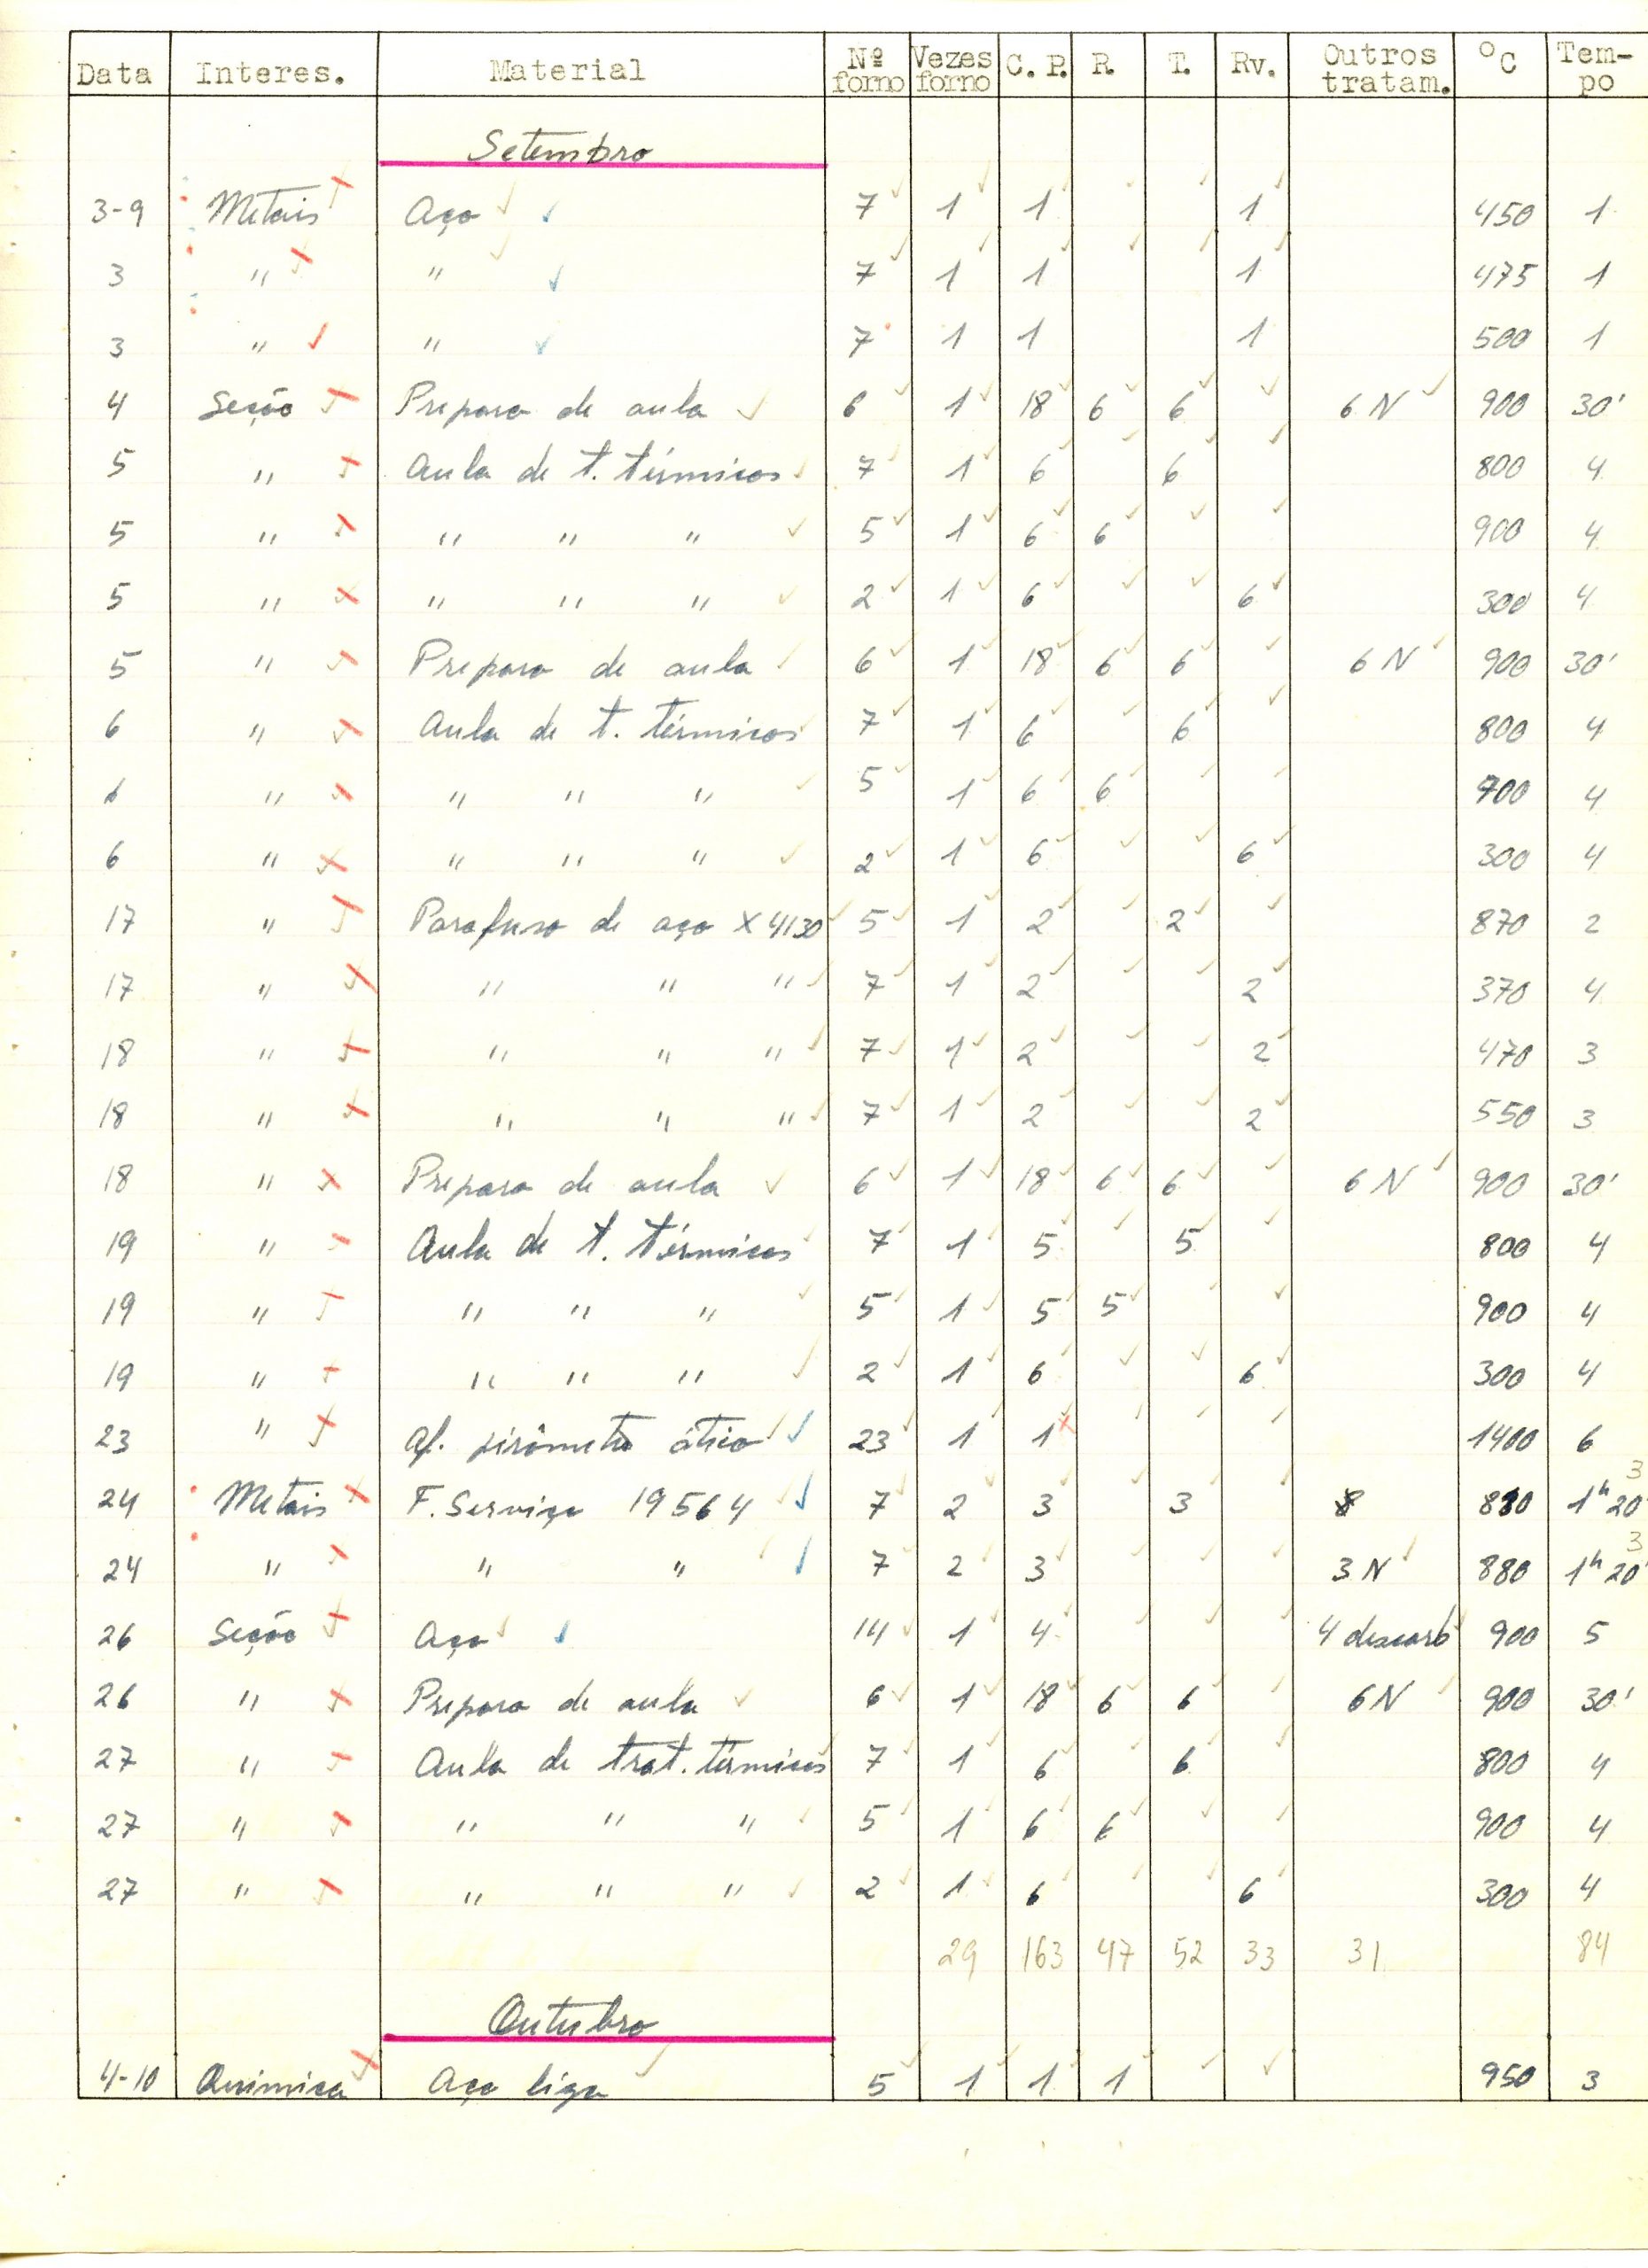 Data Interes. Material Nº forno Vezes forno C. P. R. T. Rv. Outros tratam. ºC Tempo
Setembro
3-9 Metais Aço 7 1 1 1 450 1
3 " " 7 1 1 1 475 1
3 " " 7 1 1 1 500 1
4 Seção Preparo de aula 6 1 18 6 6 6 N 900 30'
5 " Aula de t. térmicos 7 1 6 6 800 4
5 " " " " 5 1 6 6 900 4
5 " " " " 2 1 6 6 300 4
5 " Preparo de aula 6 1 18 6 6 6 N 900 30'
6 " Aula de t. térmicos 7 1 6 6 800 4
6 " " " " 5 1 6 6 900 4
6 " " " " 2 1 6 6 300 4
17 " Parafuso de aço X 4130 5 1 2 2 870 2
17 " " " " 7 1 2 2 370 4
18 " " " " 7 1 2 2 470 3
18 " " " " 7 1 2 2 550 3
18 " Preparo de aula 6 1 18 6 6 6 N 900 30'
19 " Aula de t. térmicos 7 1 5 5 800 4
19 " " " " 5 1 5 5 900 4
19 " " " " 2 1 6 6 300 4
23 " af. pirômetro ótico 23 1 1 1400 6
24 Metais F. Serviço 19564 7 2 3 3 830 1h 20' 3
24 " " " 7 2 3 3 N 880 1h 20' 3
26 Seção Aço 14 1 4 4 descarb 900 5
26 " Preparo de aula 6 1 18 6 6 6 N 900 30'
27 " Aula de trat. térmicos 7 1 6 6 800 4
27 " " " " 5 1 6 6 900 4
27 " " " " 2 1 6 6 300 4
29 163 47 52 33 31 84
Outubro
4-10 Quimica Aço liga 5 1 1 1 950 3